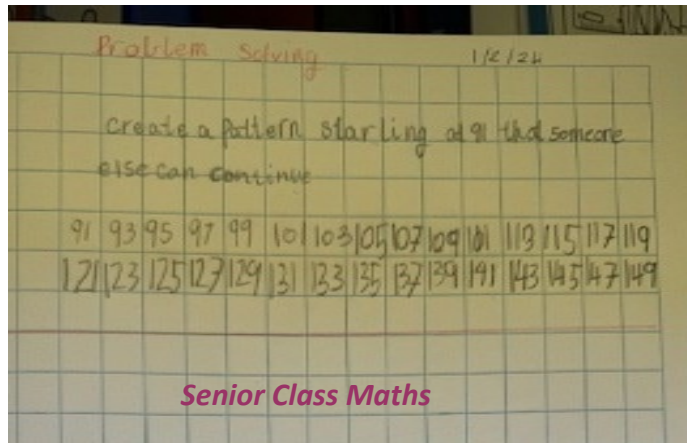 Problem Solving 1/2/24
Create a pattern starling at 91 that someone
else can continue
91 93 95 97 99 101 103 105 107 109 101 113 115 117 119
121 123 125 127 129 131 133 135 137 139 141 143 145 147 149
Senior Class Maths